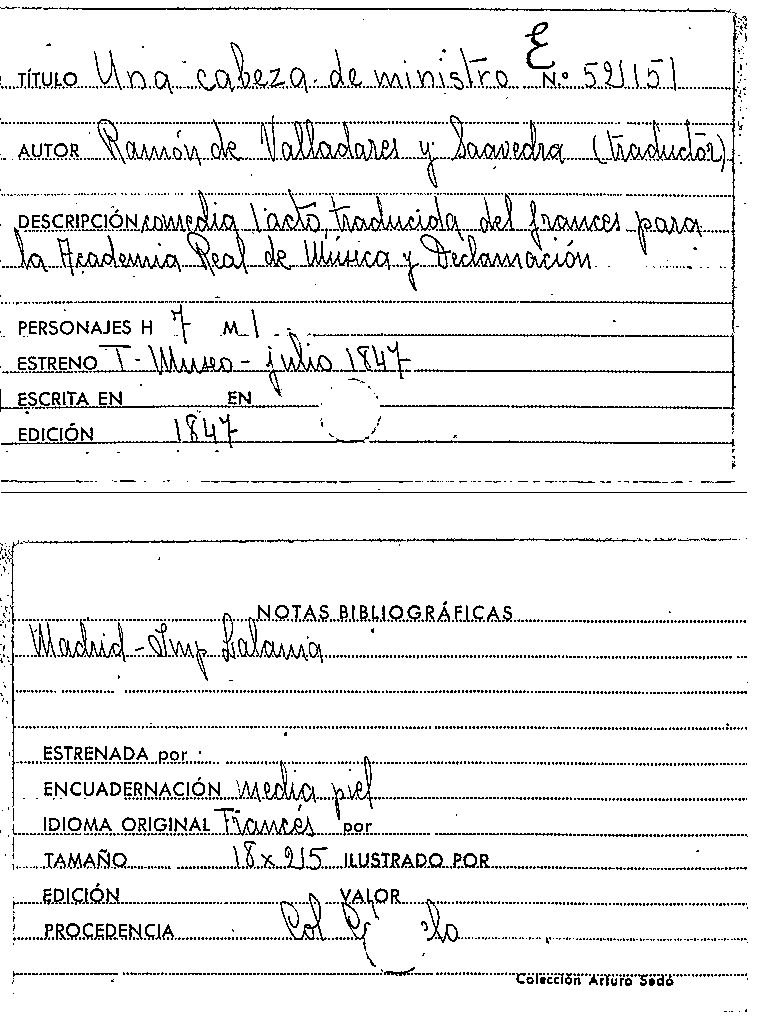 E
TÍTULO Una cabeza de ministro N.º 52151
AUTOR Ramón de Valladares y Saavedra (traductor)
DESCRIPCIÓN comedia 1 acto, traducida del frances para
la Academia Real de Música y Declamación
PERSONAJES H 7 M 1
ESTRENO T. Museo - julio 1847
ESCRITA EN EN
EDICIÓN 1847
NOTAS BIBLIOGRÁFICAS
Madrid - Imp Lalama
ESTRENADA por
ENCUADERNACIÓN media piel
IDIOMA ORIGINAL Francés por
TAMAÑO 18 x 215 ILUSTRADO POR
EDICIÓN VALOR
PROCEDENCIA Col
Colección Arturo Sedó